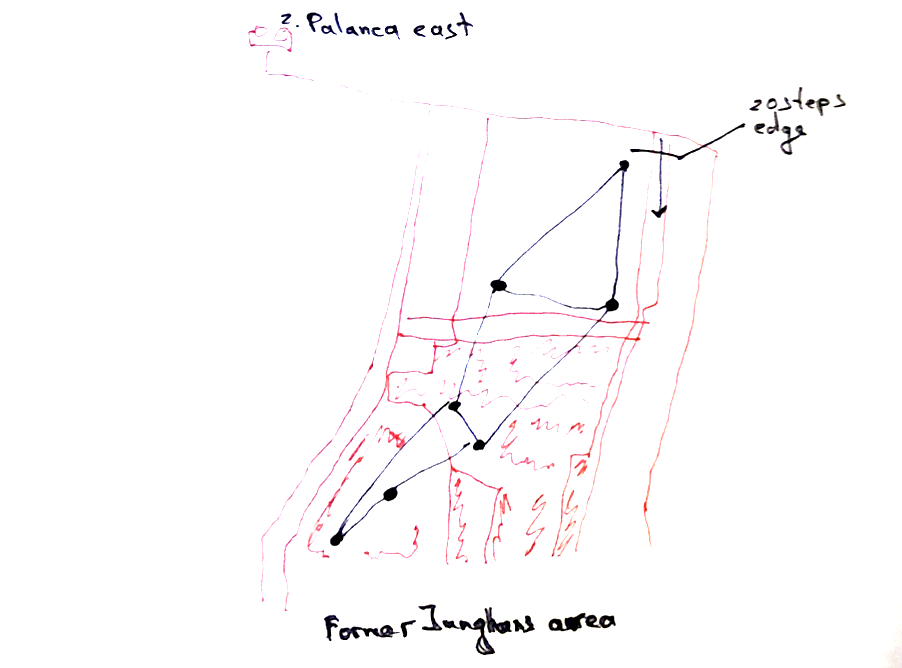 2. Palanca east
20 steps
edge
Former Junghans area